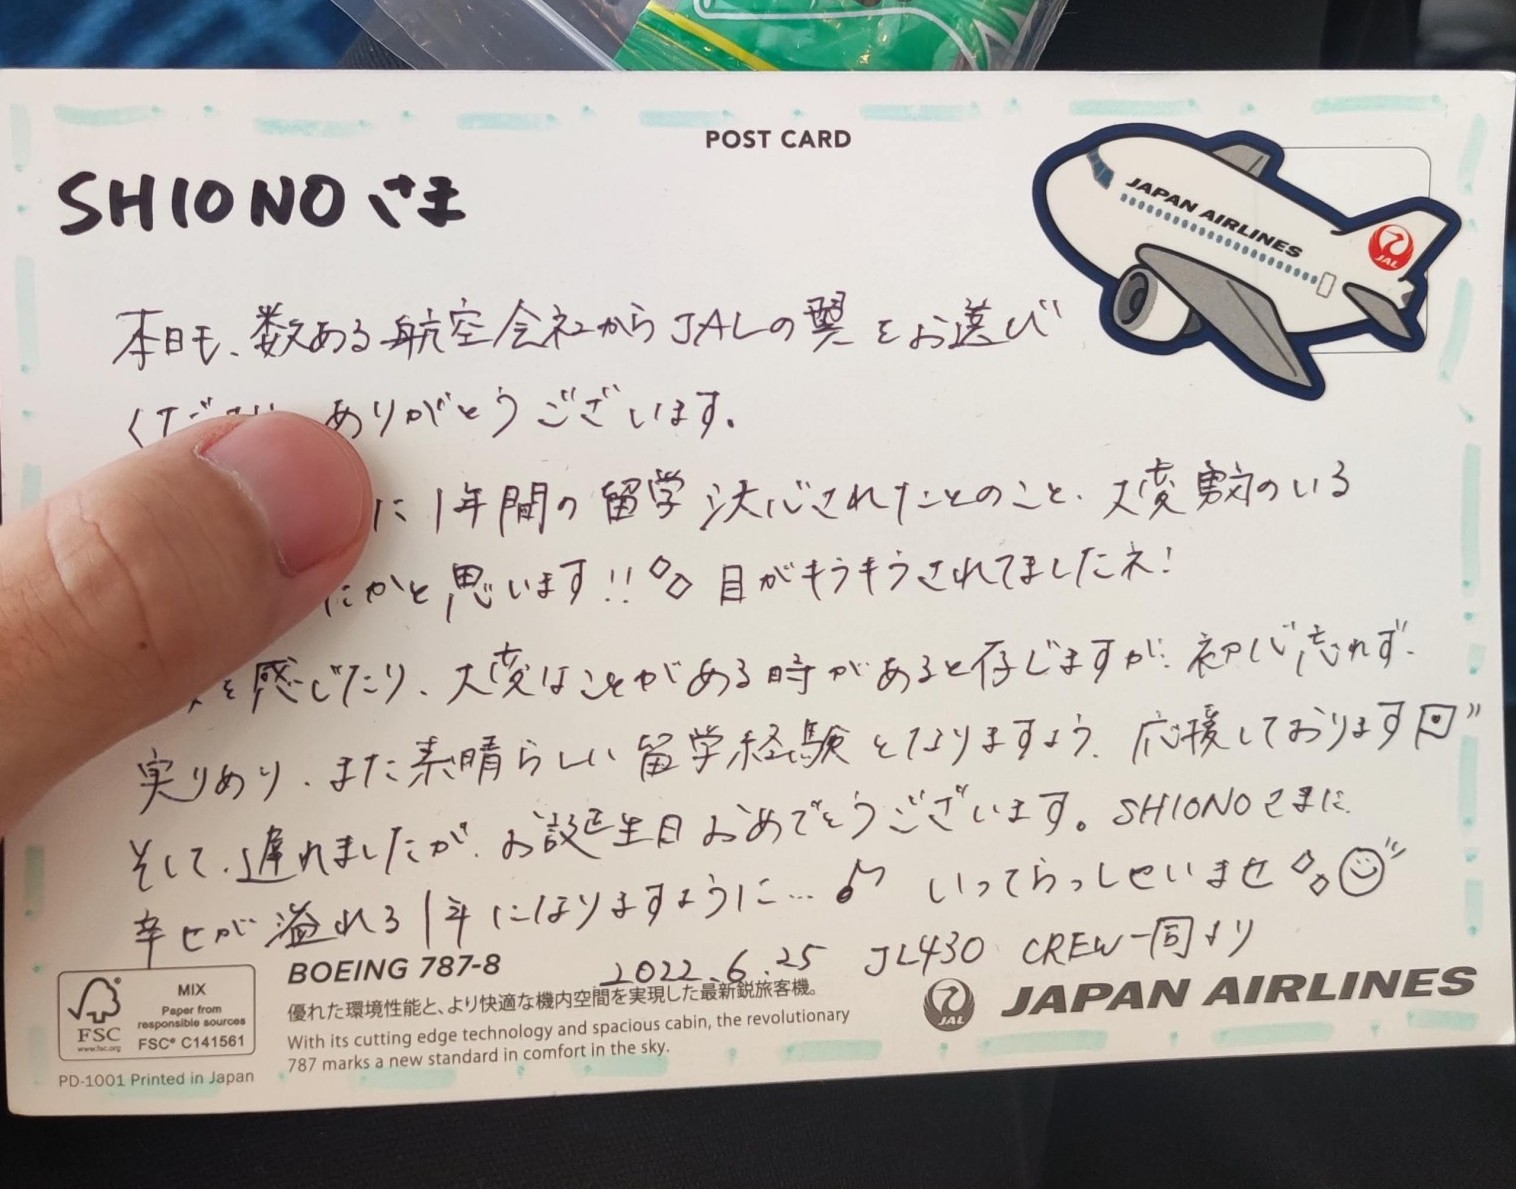 POST CARD
SHIONOさま
JAPAN AIRLINES
JAL
本日も、数ある航空会社からJALの翼をお選び
くださり ありがとうございます。
に1年間の留学決心されたとのこと、大変勇気のいる
たかと思います!! 目がキラキラされてましたネ!
を感じたり、大変なことがある時があると存じますが、初心忘れず、
実りあり、また素晴らしい留学経験となりますよう、応援しております
そして、遅れましたが、お誕生日おめでとうございます。SHIONOさまに
幸せが溢れる1年になりますように…♪ いってらっしゃいませ
2022.6.25 JL430 CREW一同より
MIX
Paper from
responsible sources
FSC® C141561
FSC
www.fsc.org
PD-1001 Printed in Japan
BOEING 787-8
優れた環境性能と、より快適な機内空間を実現した最新鋭旅客機。
With its cutting edge technology and spacious cabin, the revolutionary
787 marks a new standard in comfort in the sky.
JAL
JAPAN AIRLINES